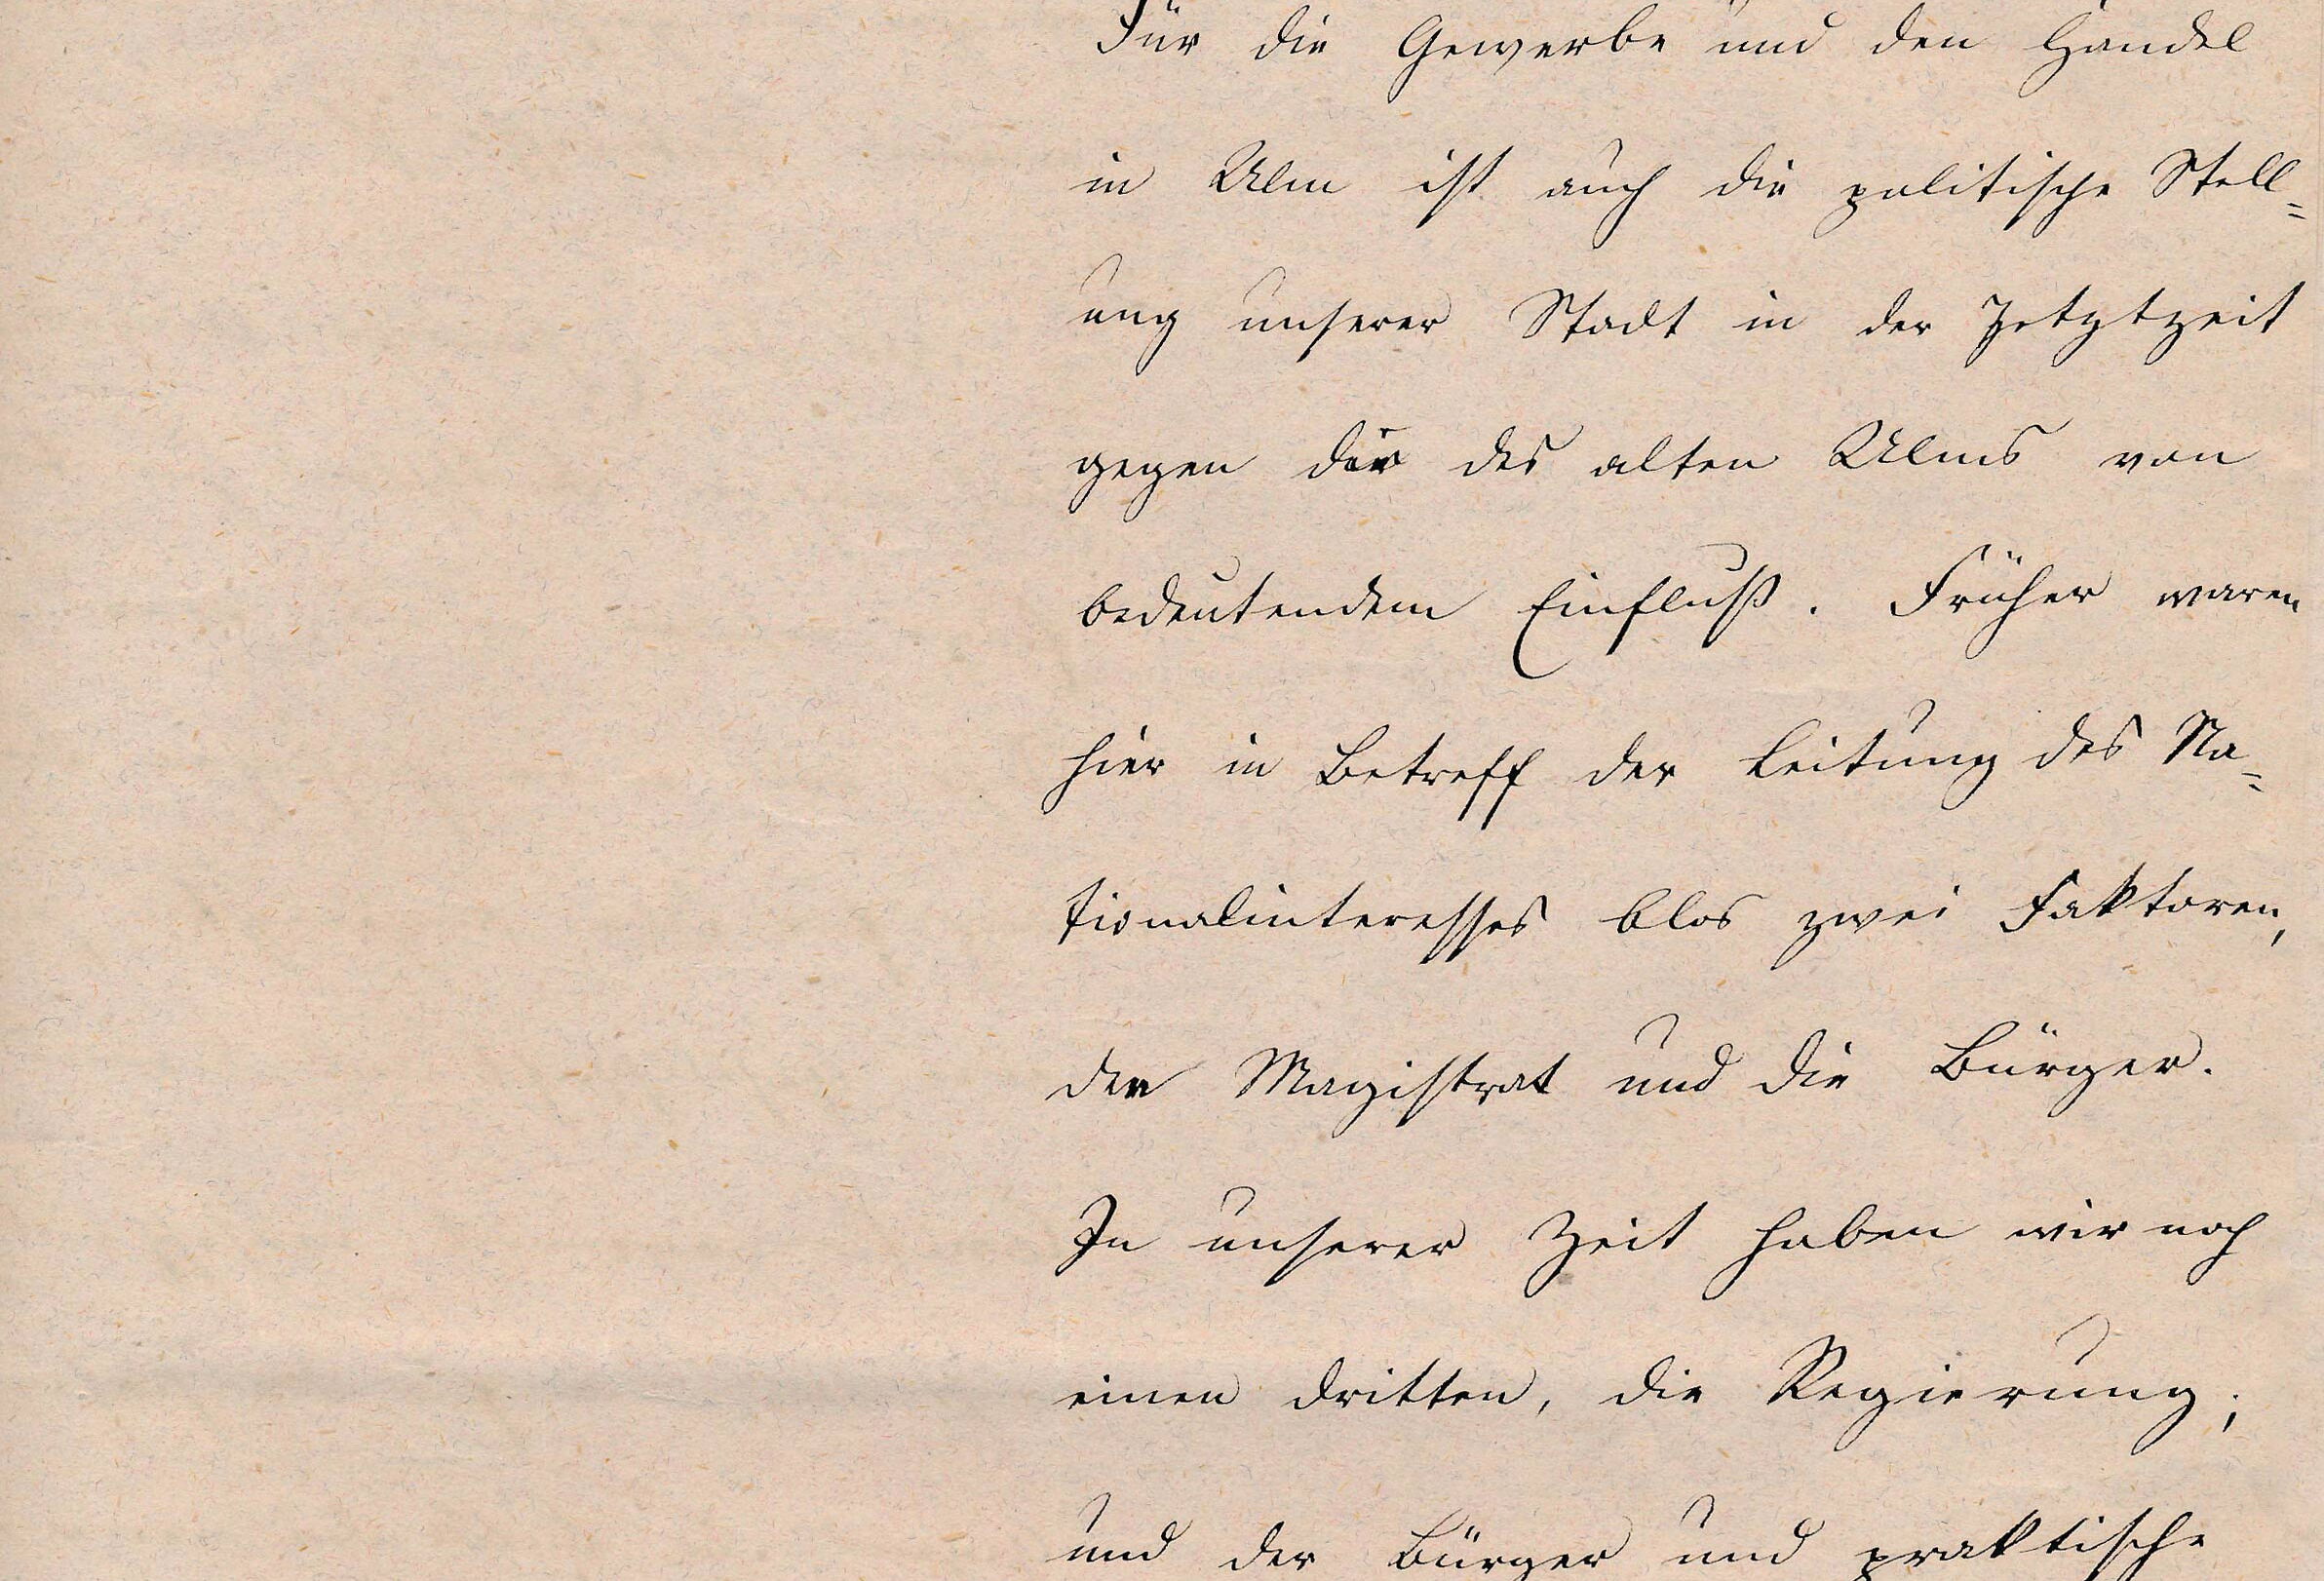 Für die Gewerbe und den Handel
in Ulm ist auch die politische Stell=
ung unserer Stadt in der Jetztzeit
gegen die des alten Ulms von
bedeutendem Einfluß. Früher waren
hier in Betreff der Leitung des Na=
tionalinteresses blos zwei Faktoren,
der Magistrat und die Bürger.
In unserer Zeit haben wir noch
einen dritten, die Regierung;
und der Bürger und praktische